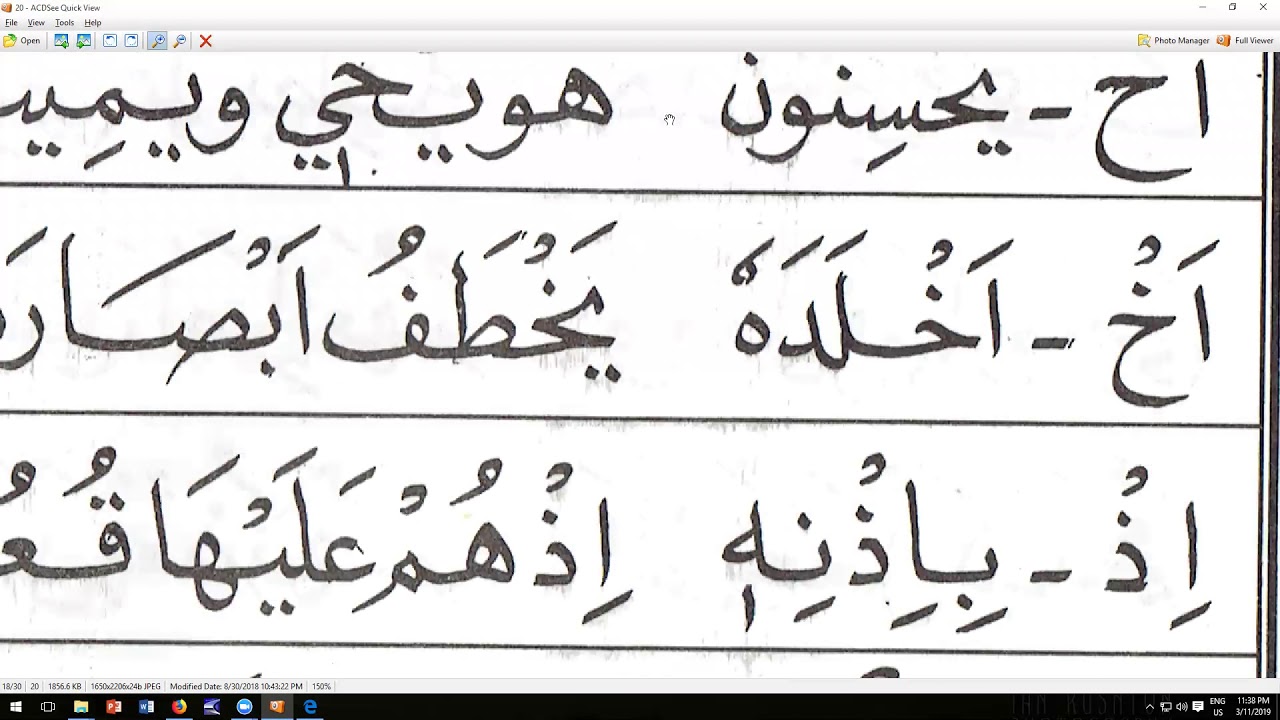 20 - ACDSee Quick View
File View Tools Help
Open Photo Manager Full Viewer
ا ح - يحسِنون هويحيٖ ويمِيـ
اَخْ - اَخْلَدَهٗ يَخْطَفُ اَبْصَارَ
اِذْ - بِاِذْنِهٖ اِذْهُمْ عَلَيْهَا قُعُ
18/30 20 1856.6 KB 1650x2206x24b JPEG Modified Date: 8/30/2018 10:43:22 PM 150%
ENG 11:38 PM
US 3/11/2019